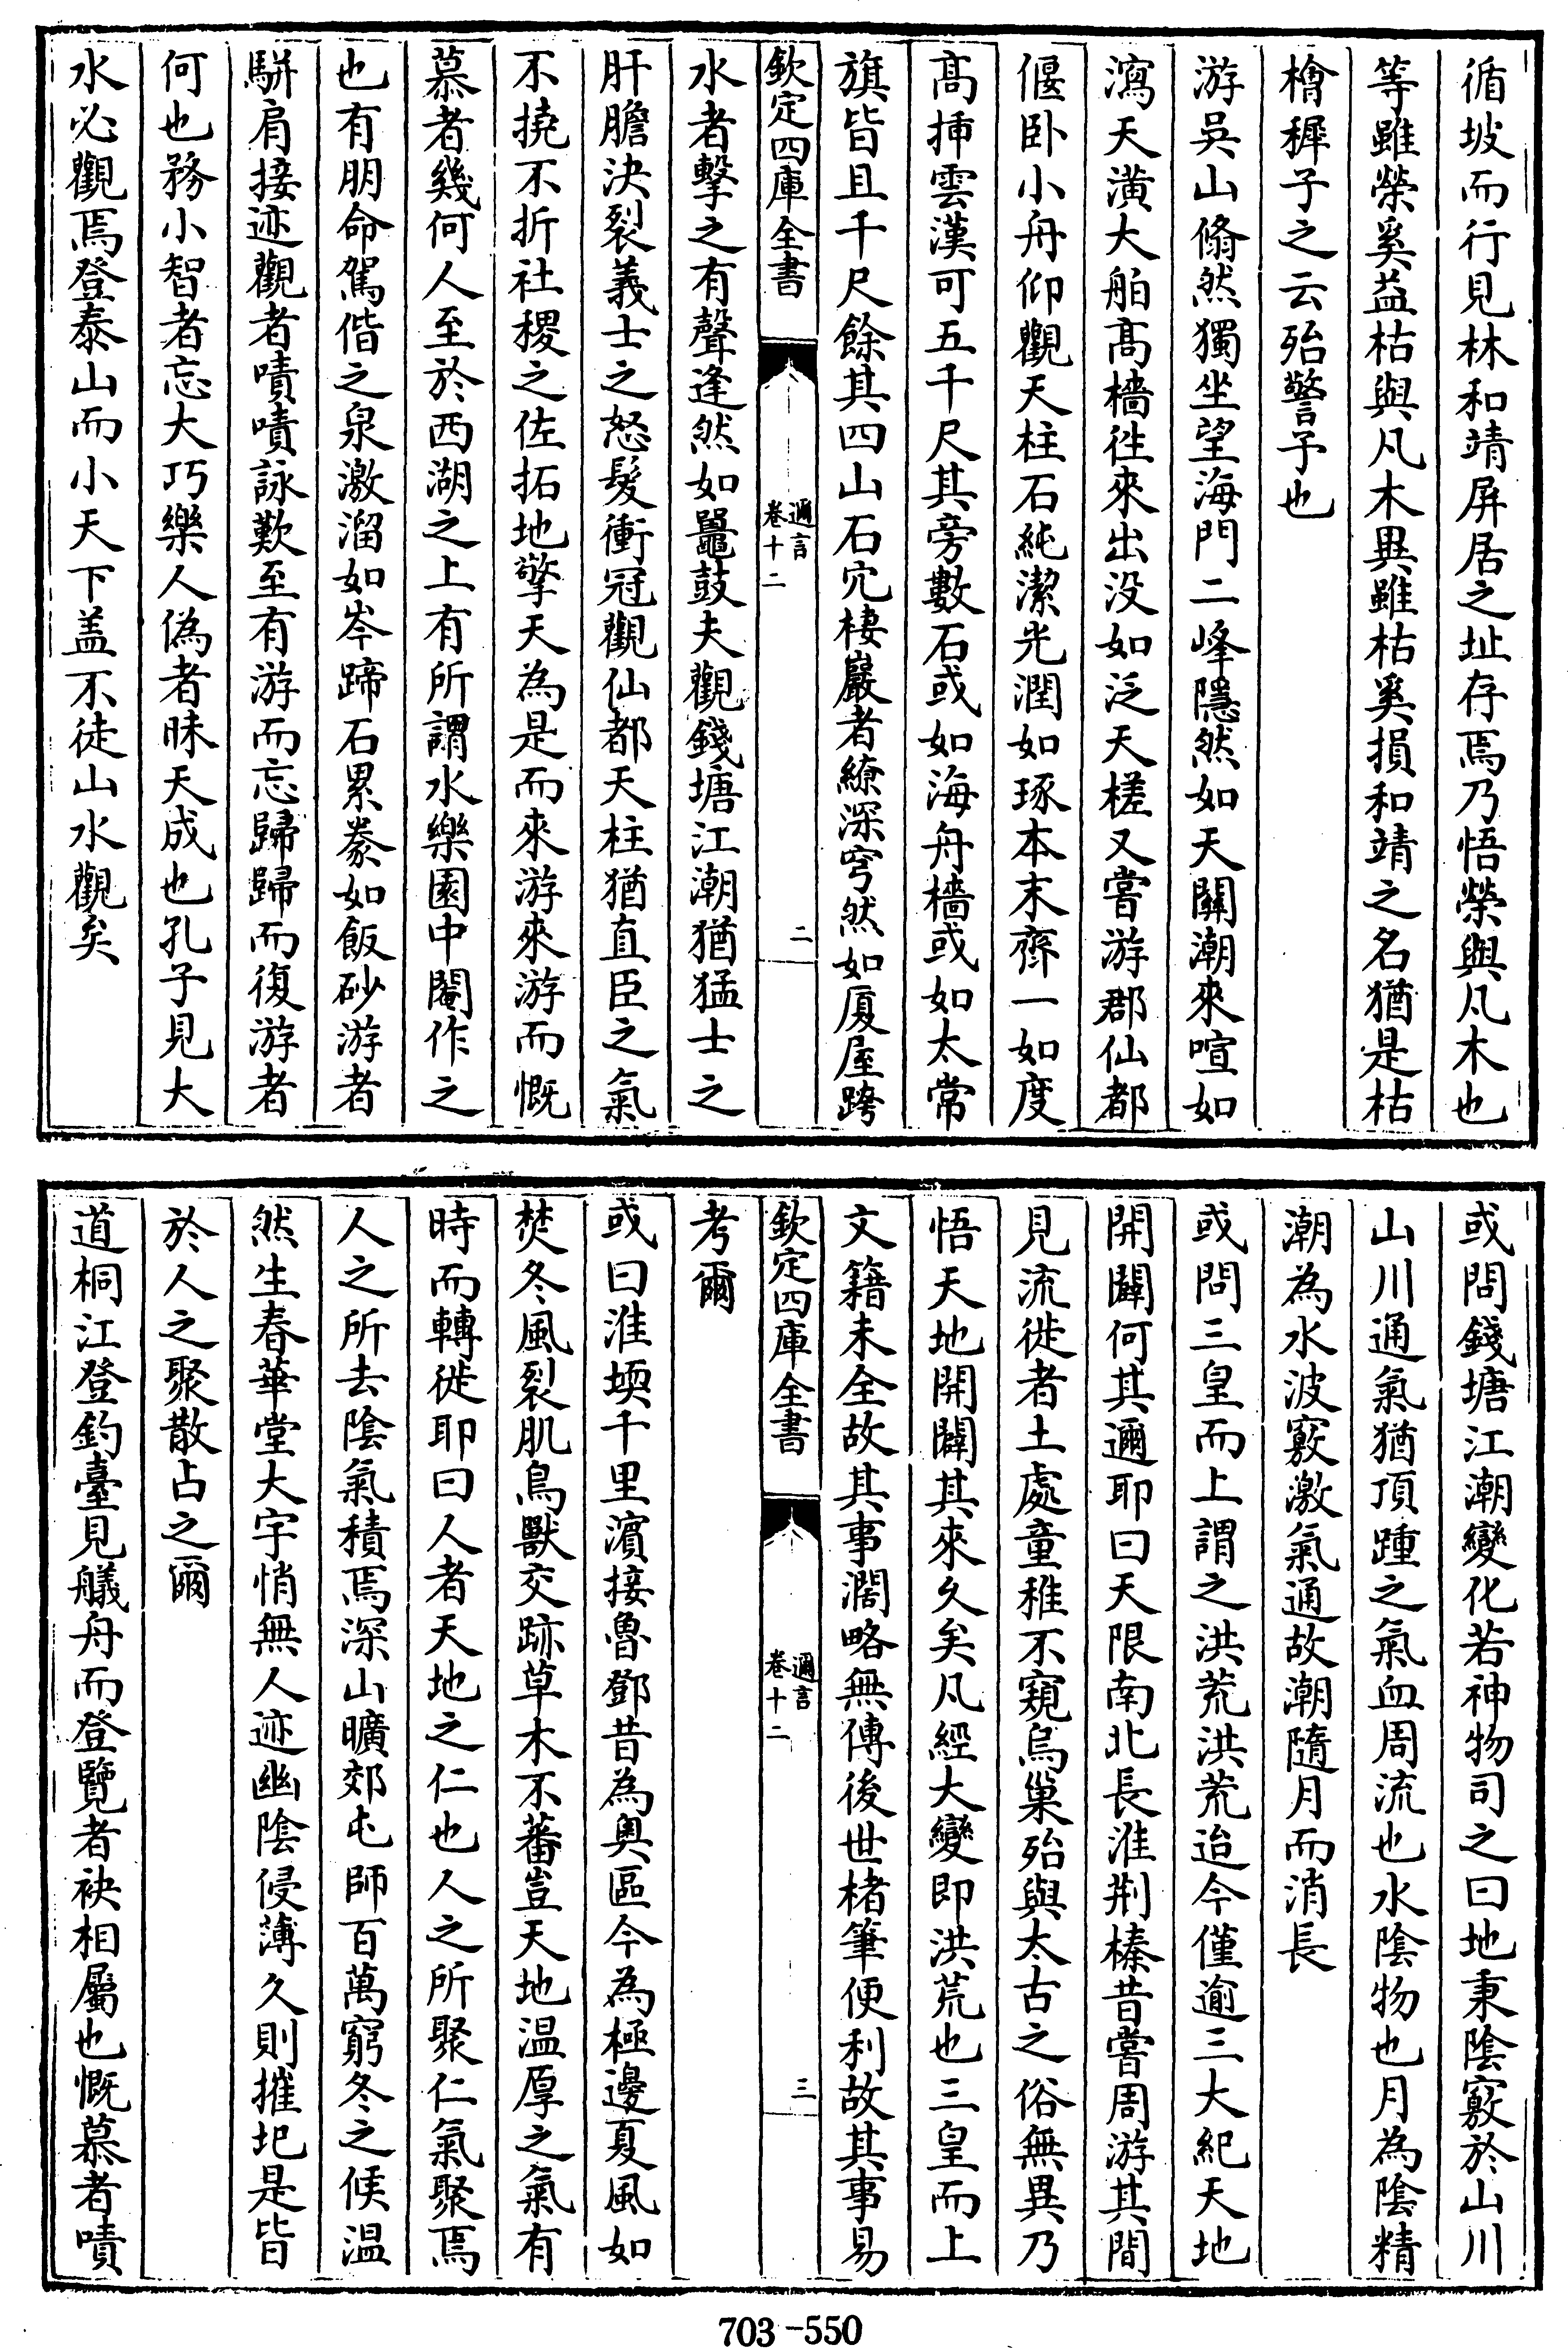 循坡而行見林和靖屏居之址存焉乃悟榮與凡木也
等雖榮奚益枯與凡木異雖枯奚損和靖之名猶是枯
檜穉子之云殆警予也
游吳山翛然獨坐望海門二峰隱然如天關潮來喧如
瀉天潢大舶髙檣徃來出没如泛天槎又嘗游郡仙都
偃卧小舟仰觀天柱石純潔光潤如琢本末齊一如度
髙揷雲漢可五千尺其旁數石或如海舟檣或如太常
旗皆且千尺餘其四山石穴棲巖者繚深穹然如厦屋跨
欽定四庫全書
邇言
卷十二
二
水者擊之有聲逢然如鼉鼓夫觀錢塘江潮猶猛士之
肝膽決裂義士之怒髮衝冠觀仙都天柱猶直臣之氣
不撓不折社稷之佐拓地擎天為是而來游來游而慨
慕者幾何人至於西湖之上有所謂水樂園中閹作之
也有朋命駕偕之泉激溜如岑蹄石累豢如飯砂游者
駢肩接迹觀者嘖嘖詠歎至有游而忘歸歸而復游者
何也務小智者忘大巧樂人偽者昧天成也孔子見大
水必觀焉登泰山而小天下盖不徒山水觀矣
或問錢塘江潮變化若神物司之曰地秉陰竅於山川
山川通氣猶頂踵之氣血周流也水陰物也月為陰精
潮為水波竅激氣通故潮隨月而消長
或問三皇而上謂之洪荒洪荒迨今僅逾三大紀天地
開闢何其邇耶曰天限南北長淮荆榛昔嘗周游其間
見流徙者土處童稚不窺烏巢殆與太古之俗無異乃
悟天地開闢其來久矣凡經大變即洪荒也三皇而上
文籍未全故其事濶略無傳後世楮筆便利故其事易
欽定四庫全書
邇言
卷十二
三
考爾
或曰淮堧千里濵接魯鄧昔為奥區今為極邊夏風如
焚冬風裂肌鳥獸交跡草木不蕃豈天地温厚之氣有
時而轉徙耶曰人者天地之仁也人之所聚仁氣聚焉
人之所去陰氣積焉深山曠郊屯師百萬窮冬之候温
然生春華堂大宇悄無人迹幽陰侵薄久則摧圮是皆
於人之聚散占之爾
道桐江登釣臺見艤舟而登覽者袂相屬也慨慕者嘖
703-550